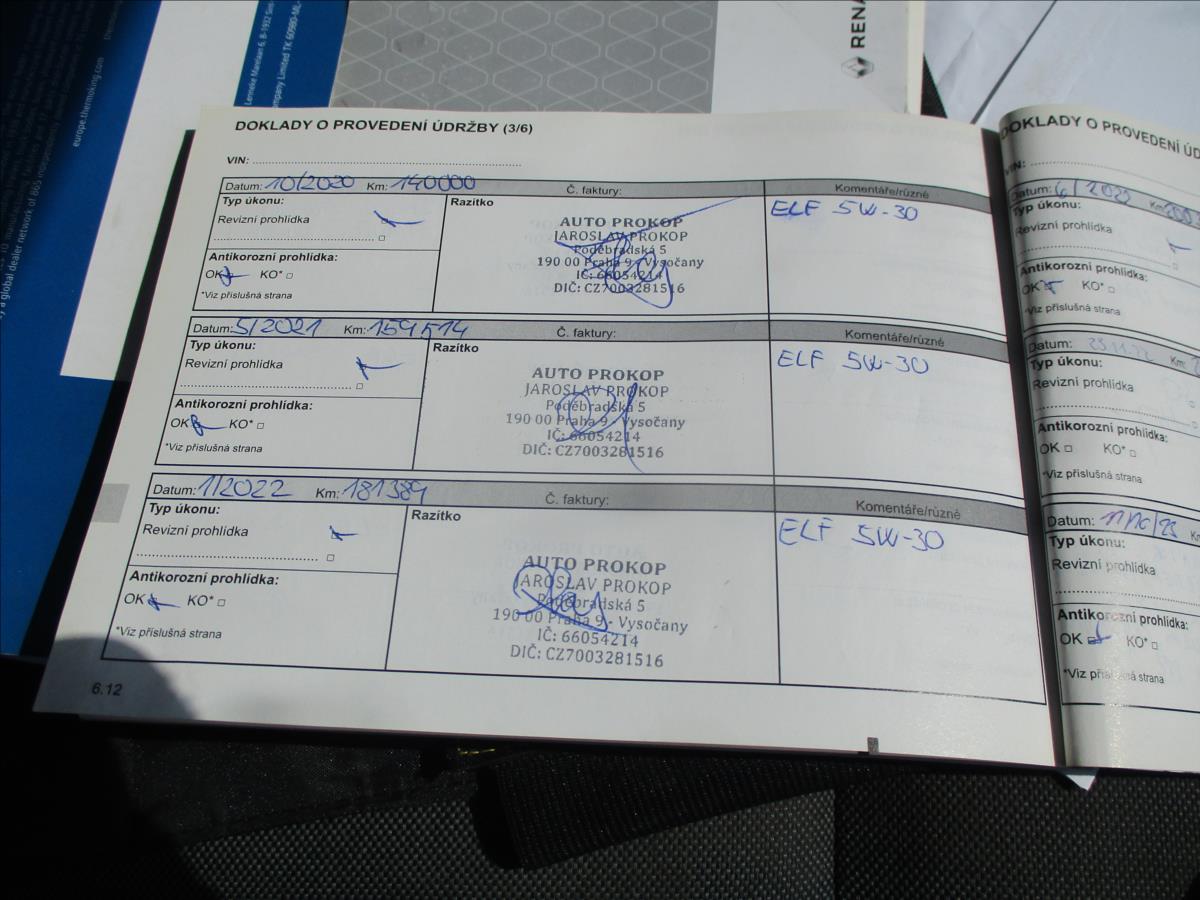 Lemeke Marelaan 6, B-1932 Sint
ompany Limited TK 60980-ML-
europe.thermoking.com
y a global dealer network of 865 independent
RENA
DOKLADY O PROVEDENÍ ÚDRŽBY (3/6)
VIN:
Datum: 10/2020 Km: 140000 Č. faktury: Komentáře/různé
Typ úkonu: Razítko ELF 5W-30
Revizní prohlídka
AUTO PROKOP
JAROSLAV PROKOP
Poděbradská 5
190 00 Praha 9 - Vysočany
IČ: 66054214
DIČ: CZ7003281516
Antikorozní prohlídka:
OK KO*
*Viz příslušná strana
Datum: 5/2021 Km: 159514 Č. faktury: Komentáře/různé
Typ úkonu: Razítko ELF 5W-30
Revizní prohlídka
AUTO PROKOP
JAROSLAV PROKOP
Poděbradská 5
190 00 Praha 9 - Vysočany
IČ: 66054214
DIČ: CZ7003281516
Antikorozní prohlídka:
OK KO*
*Viz příslušná strana
Datum: 1/2022 Km: 181389 Č. faktury: Komentáře/různé
Typ úkonu: Razítko ELF 5W-30
Revizní prohlídka
AUTO PROKOP
JAROSLAV PROKOP
Poděbradská 5
190 00 Praha 9 - Vysočany
IČ: 66054214
DIČ: CZ7003281516
Antikorozní prohlídka:
OK KO*
*Viz příslušná strana
6.12
DOKLADY O PROVEDENÍ ÚD
VIN:
Datum: 6/2022 Km:
Typ úkonu:
Revizní prohlídka
Antikorozní prohlídka:
OK KO*
*Viz příslušná strana
Datum: 23.11.22 Km:
Typ úkonu:
Revizní prohlídka
Antikorozní prohlídka:
OK KO*
*Viz příslušná strana
Datum: Km
Typ úkonu:
Revizní prohlídka
Antikorozní prohlídka:
OK KO*
*Viz příslušná strana